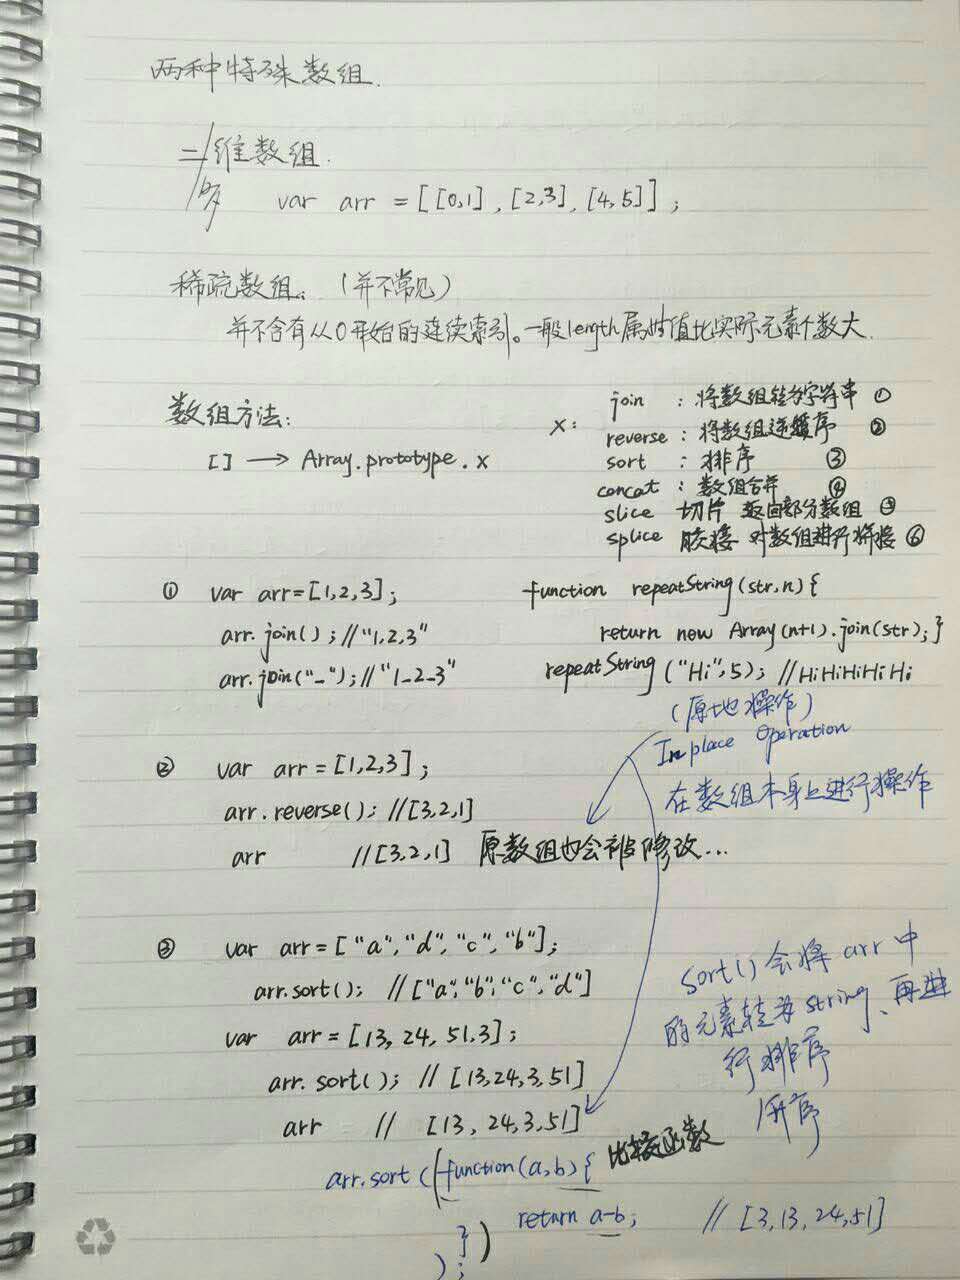 两种特殊数组.
二/维数组.
多 var arr = [[0,1], [2,3], [4,5]];
稀疏数组: (并不常见)
并不含有从0开始的连续索引。一般length属性值比实际元素个数大.
数组方法:
[] → Array.prototype.x
x:
join : 将数组转为字符串 ①
reverse : 将数组逆序 ②
sort : 排序 ③
concat : 数组合并 ④
slice 切片 返回部分数组 ⑤
splice 胶接 对数组进行拼接 ⑥
① var arr=[1,2,3];
arr.join(); //"1,2,3"
arr.join("_"); //"1_2_3"
function repeatString(str,n){
return new Array(n+1).join(str);}
repeatString("Hi",5); //HiHiHiHiHi
(原地操作)
In place Operation
在数组本身上进行操作
② var arr=[1,2,3];
arr.reverse(); //[3,2,1]
arr //[3,2,1] 原数组也会被修改...
③ var arr=["a","d","c","b"];
arr.sort(); //["a","b","c","d"]
var arr=[13,24,51,3];
arr.sort(); //[13,24,3,51]
arr // [13,24,3,51]
sort()会将arr中
的元素转为string、再进
行排序
升序
arr.sort((function(a,b){ 比较函数
return a-b; //[3,13,24,51]
})
);